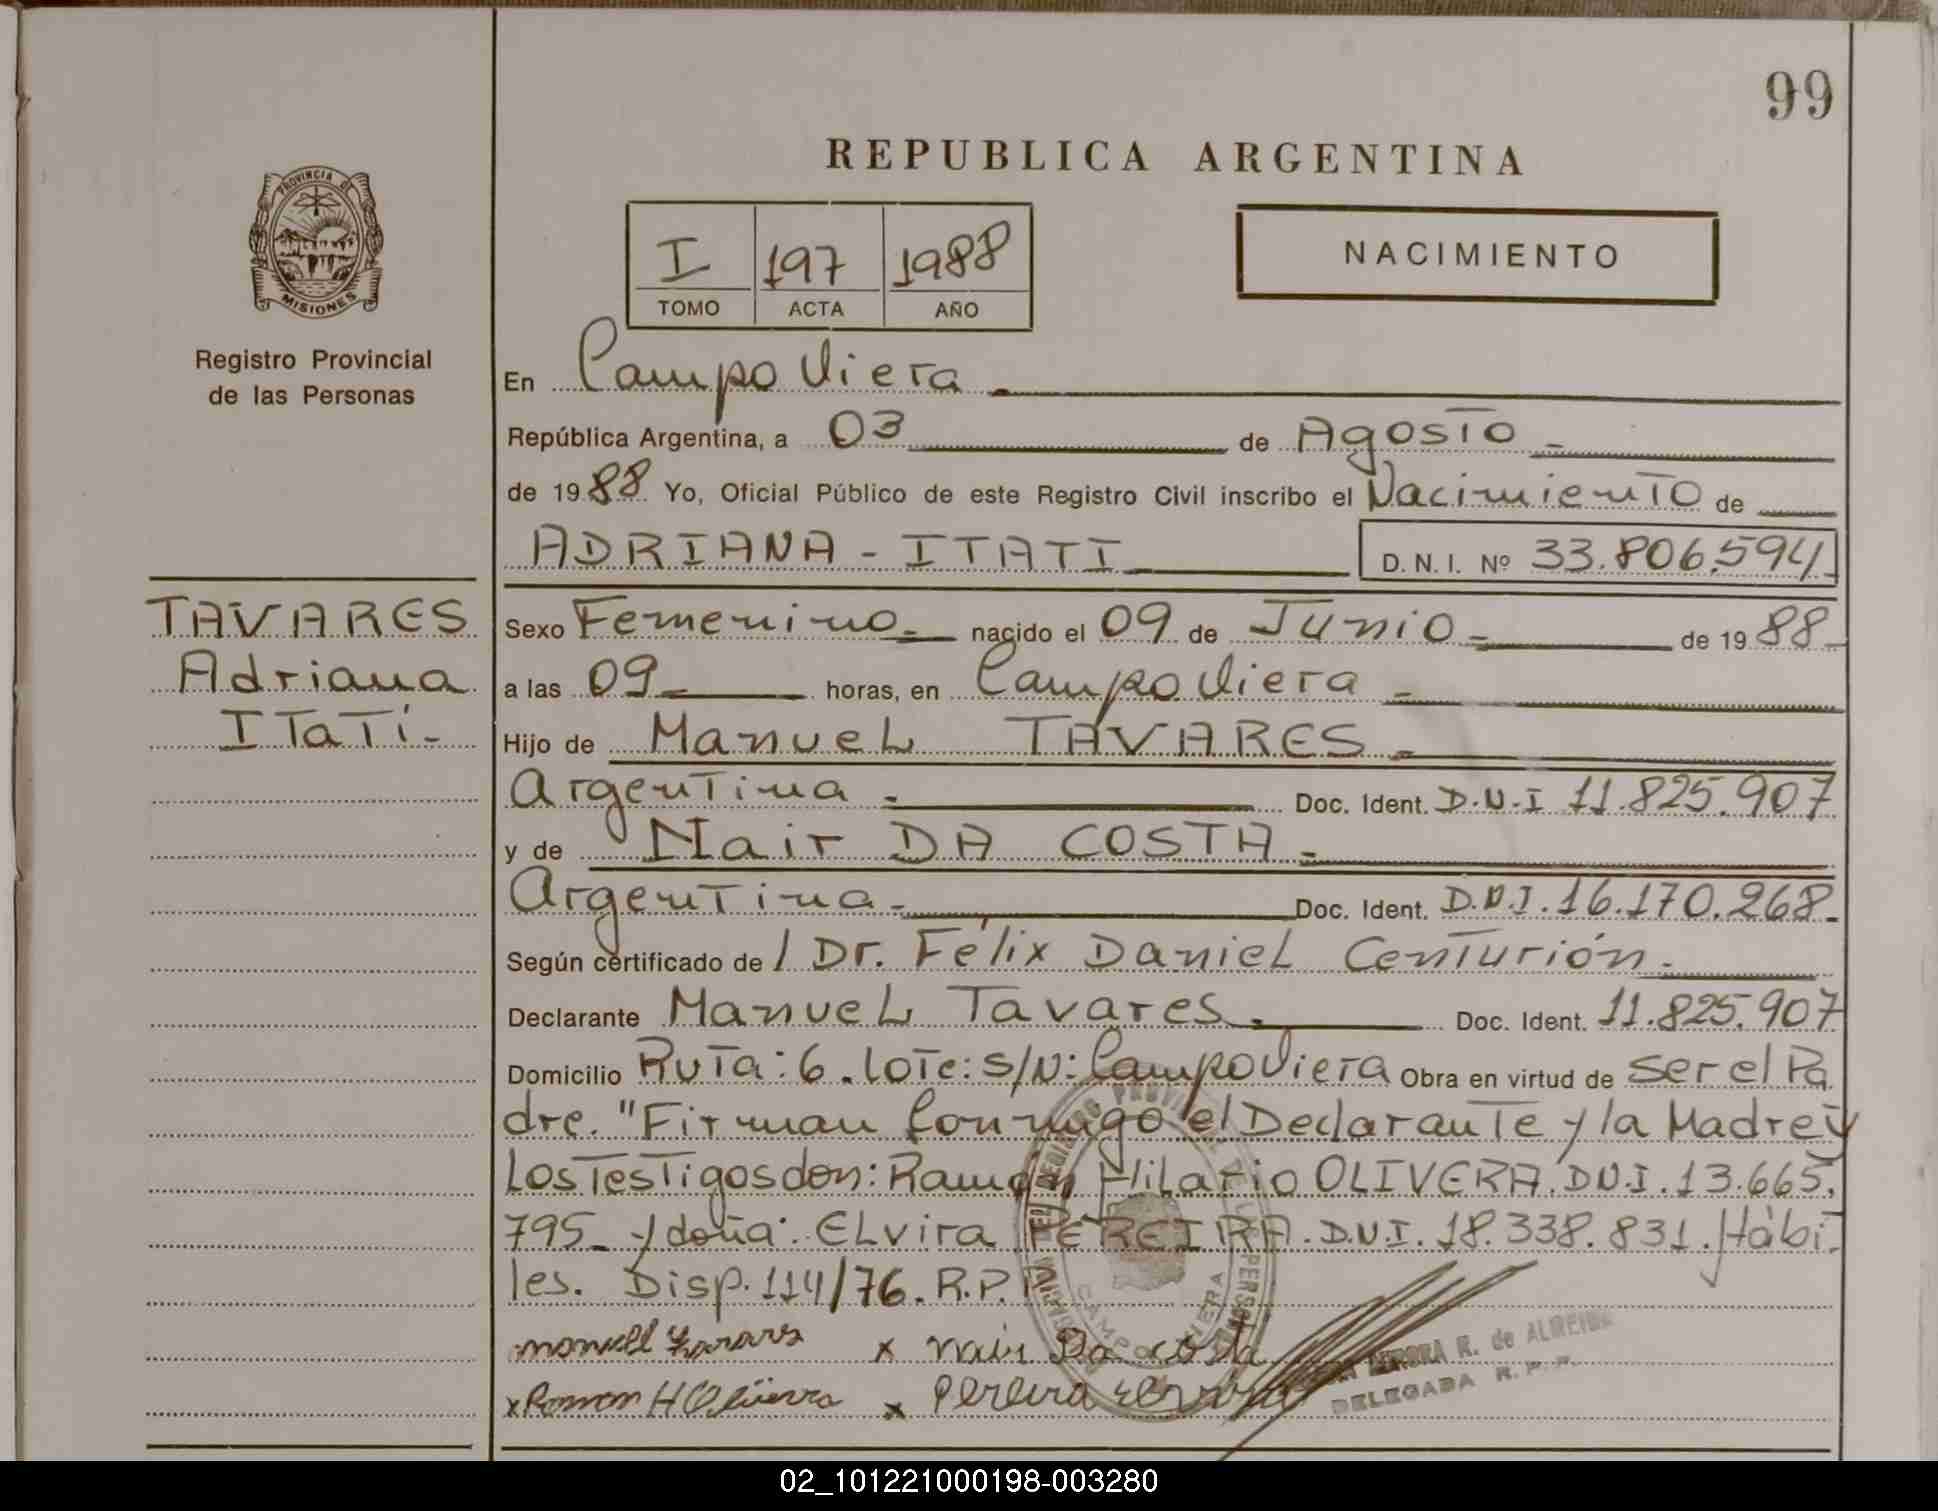 99
REPUBLICA ARGENTINA
PROVINCIA DE
MISIONES
I 197 1988
TOMO ACTA AÑO
NACIMIENTO
Registro Provincial
de las Personas
En Campo Viera
República Argentina, a 03 de Agosto
de 1988 Yo, Oficial Público de este Registro Civil inscribo el Nacimiento de
ADRIANA - ITATI D. N. I. Nº 33.806.594
TAVARES
Adriana
ITaTí-
Sexo Femenino nacido el 09 de Junio de 1988
a las 09 horas, en Campo Viera
Hijo de Manuel TAVARES
Argentina Doc. Ident. D.N.I 11.825.907
y de Nair DA COSTA
Argentina Doc. Ident. D.N.I. 16.170.268
Según certificado de / Dr. Félix Daniel Centurión
Declarante Manuel Tavares Doc. Ident. 11.825.907
Domicilio Ruta: 6. Lote: S/N: Campo Viera Obra en virtud de ser el Pa
dre. "Firman Conmigo el Declarante y la Madre y
Los Testigos don: Ramón Hilario OLIVERA. D.N.I. 13.665.
795 y doña: Elvira PEREIRA. D.N.I. 18.338.831. Hábi-
les. Disp. 114/76. R.P.P.
x Nair Da costa
x Ramon H Olivera x Pereira
R. de ALMEIDA
DELEGADA R.P.P.
CAMPO VIERA
02_101221000198-003280